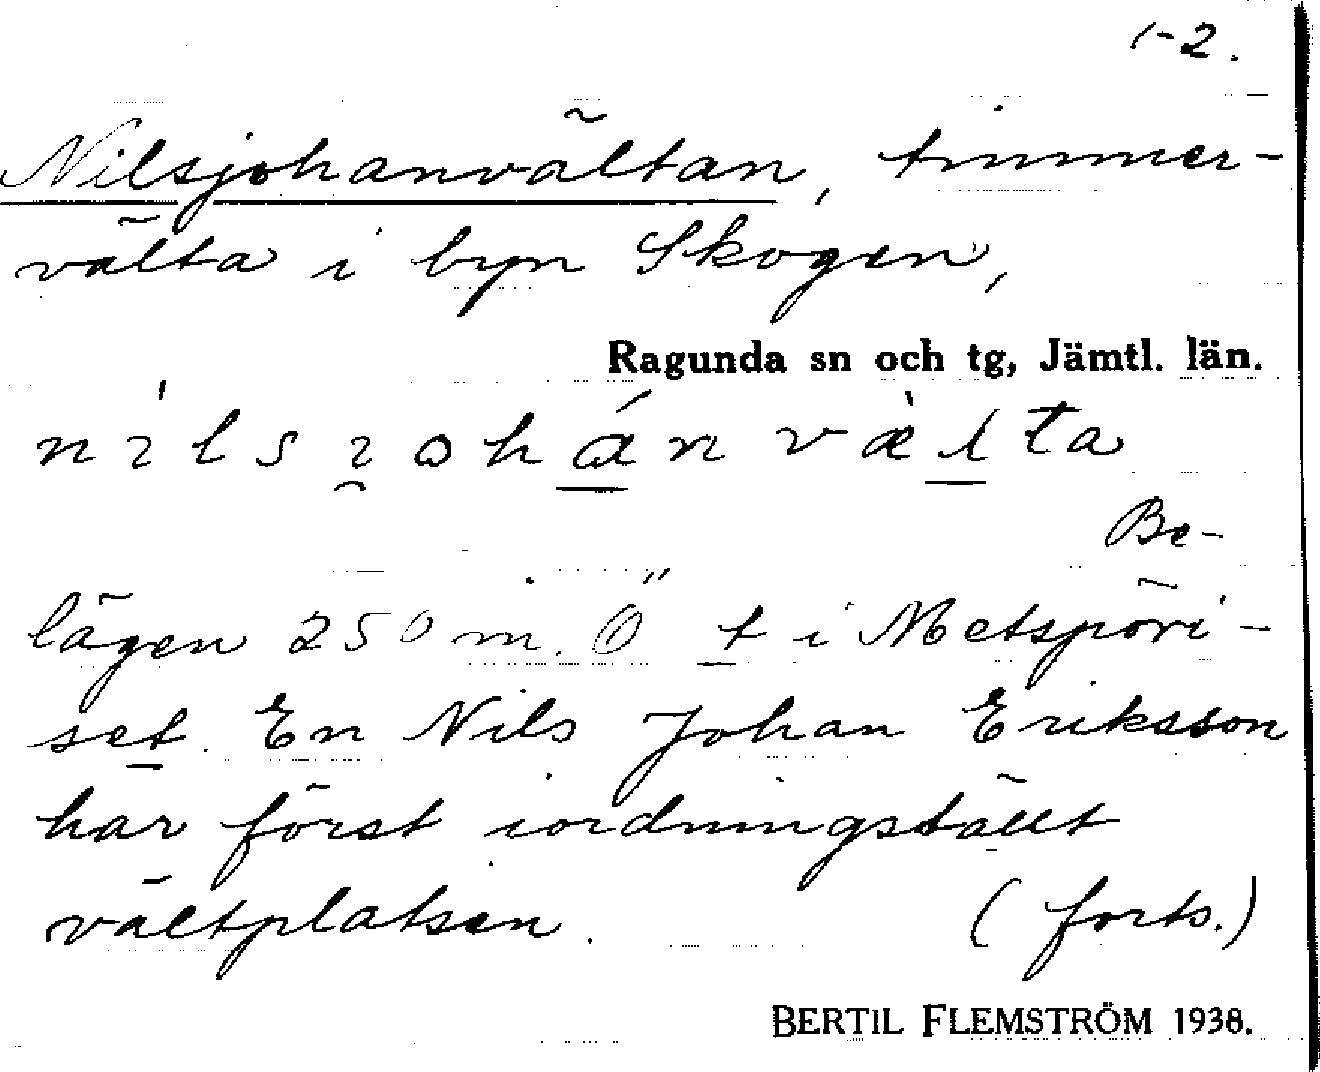 1-2.
Nilsjohanvältan, timmer-
välta i byn Skogen,
Ragunda sn och tg, Jämtl. län.
Be-
lägen 250 m. Ö t i Metspöri-
set. En Nils Johan Eriksson
har först iordningställt
vältplatsen. (forts.)
BERTIL FLEMSTRÖM 1938.